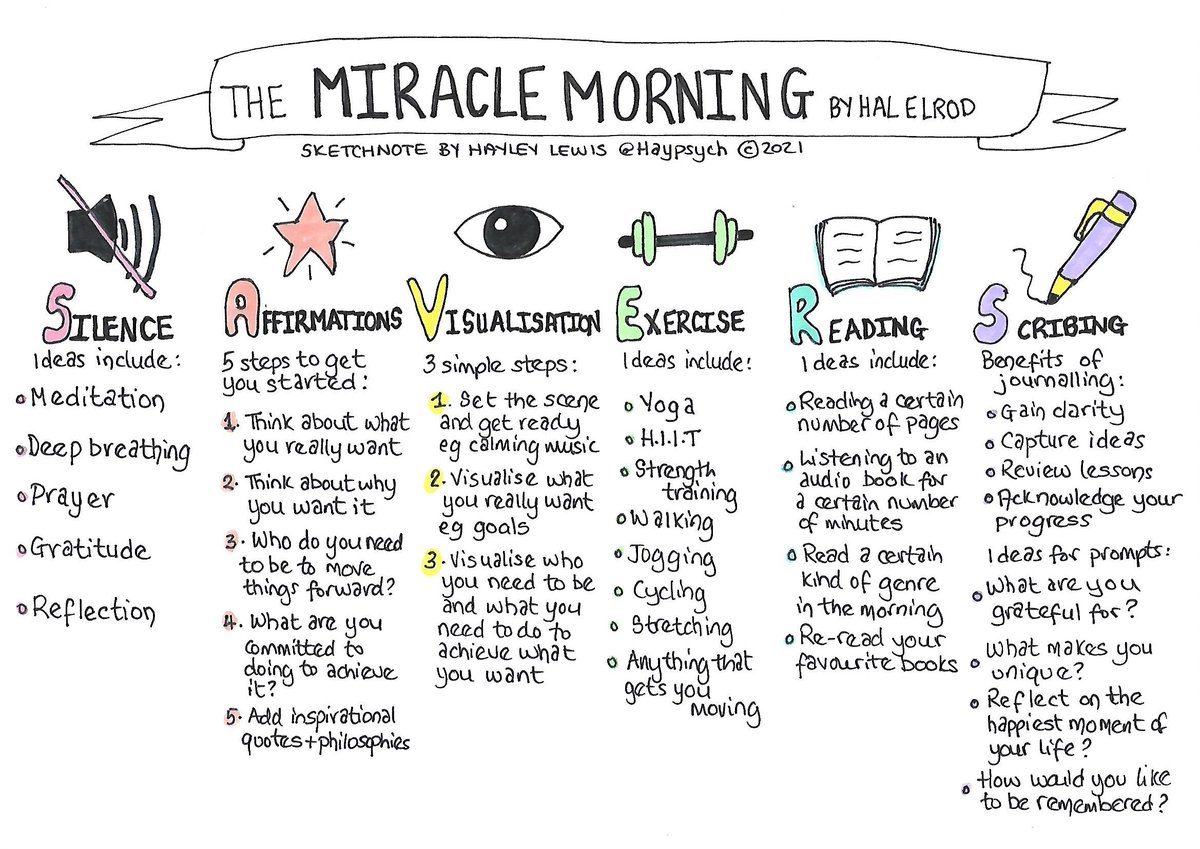 THE MIRACLE MORNING BY HAL ELROD
SKETCHNOTE BY HAYLEY LEWIS @Haypsych ©2021
SILENCE
Ideas include:
Meditation
Deep breathing
Prayer
Gratitude
Reflection
AFFIRMATIONS
5 steps to get
you started:
1. Think about what
you really want
2. Think about why
you want it
3. Who do you need
to be to move
things forward?
4. What are you
committed to
doing to achieve
it?
5. Add inspirational
quotes+philosophies
VISUALISATION
3 simple steps:
1. Set the scene
and get ready
eg calming music
2. Visualise what
you really want
eg goals
3. Visualise who
you need to be
and what you
need to do to
achieve what
you want
EXERCISE
Ideas include:
Yoga
H.I.I.T
Strength
training
Walking
Jogging
Cycling
Stretching
Anything that
gets you
moving
READING
Ideas include:
Reading a certain
number of pages
Listening to an
audio book for
a certain number
of minutes
Read a certain
kind of genre
in the morning
Re-read your
favourite books
SCRIBING
Benefits of
journalling:
Gain clarity
Capture ideas
Review lessons
Acknowledge your
progress
Ideas for prompts:
What are you
grateful for?
What makes you
unique?
Reflect on the
happiest moment of
your life?
How would you like
to be remembered?